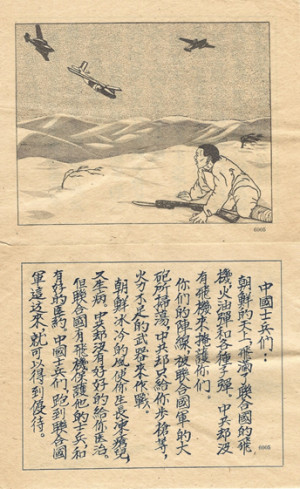 6003
中國士兵們:
朝鮮的天上飛滿了聯合國的飛
機火油彈和各種子彈。中共却沒
有飛機來掩護你们。
你们的陣線被聯合國軍的大
砲所掃蕩,中共却只給你步槍等,
火力不足的武器來作戰。
朝鮮冰冷的風使你生長凍瘡兒
又生病。中共却沒有好好的給你医治。
但聯合國有飛機保護他的士兵和
有好的医药。中國士兵们,跑到聯合國
軍這边來,就可以得到優待。
6003